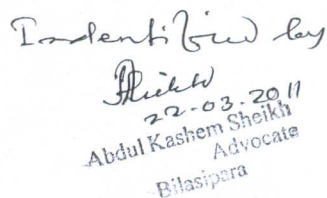 Indentified by
22-03-2011
Abdul Kashem Sheikh
Advocate
Bilasipara